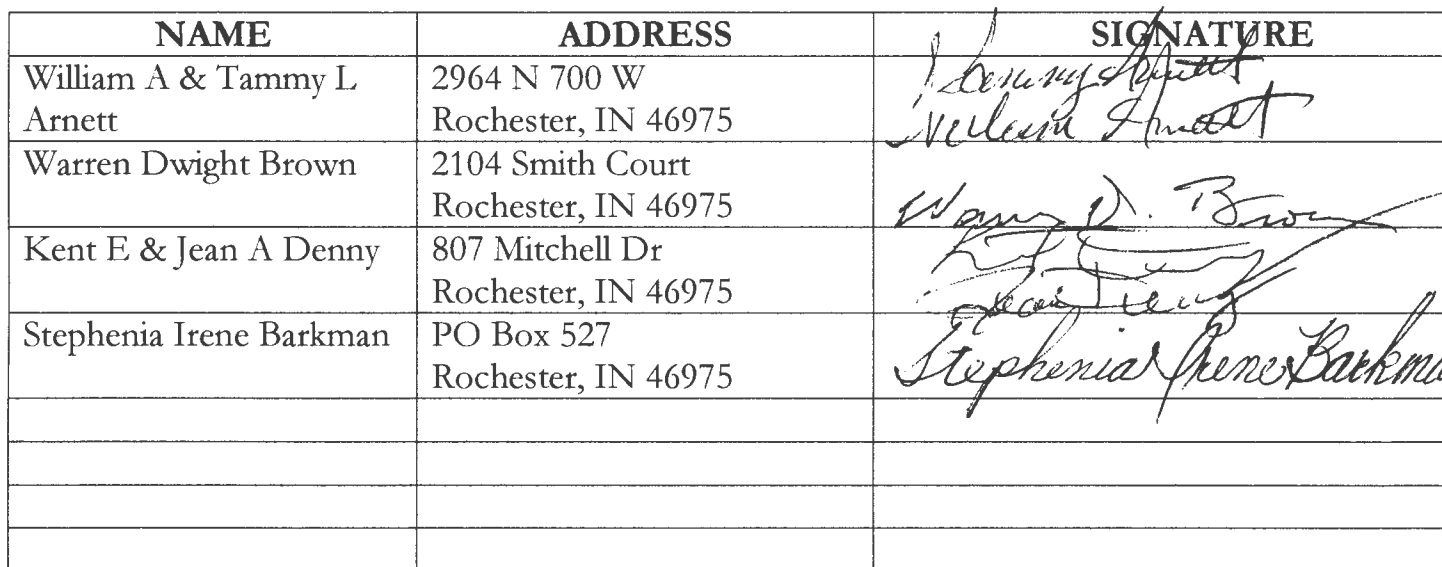 NAME ADDRESS SIGNATURE
William A & Tammy L 2964 N 700 W Tammy Arnett
Arnett Rochester, IN 46975 William Arnett
Warren Dwight Brown 2104 Smith Court
Rochester, IN 46975 D. Brown
Kent E & Jean A Denny 807 Mitchell Dr
Rochester, IN 46975 Jean Denny
Stephenia Irene Barkman PO Box 527
Rochester, IN 46975 Stephenia Irene Barkma